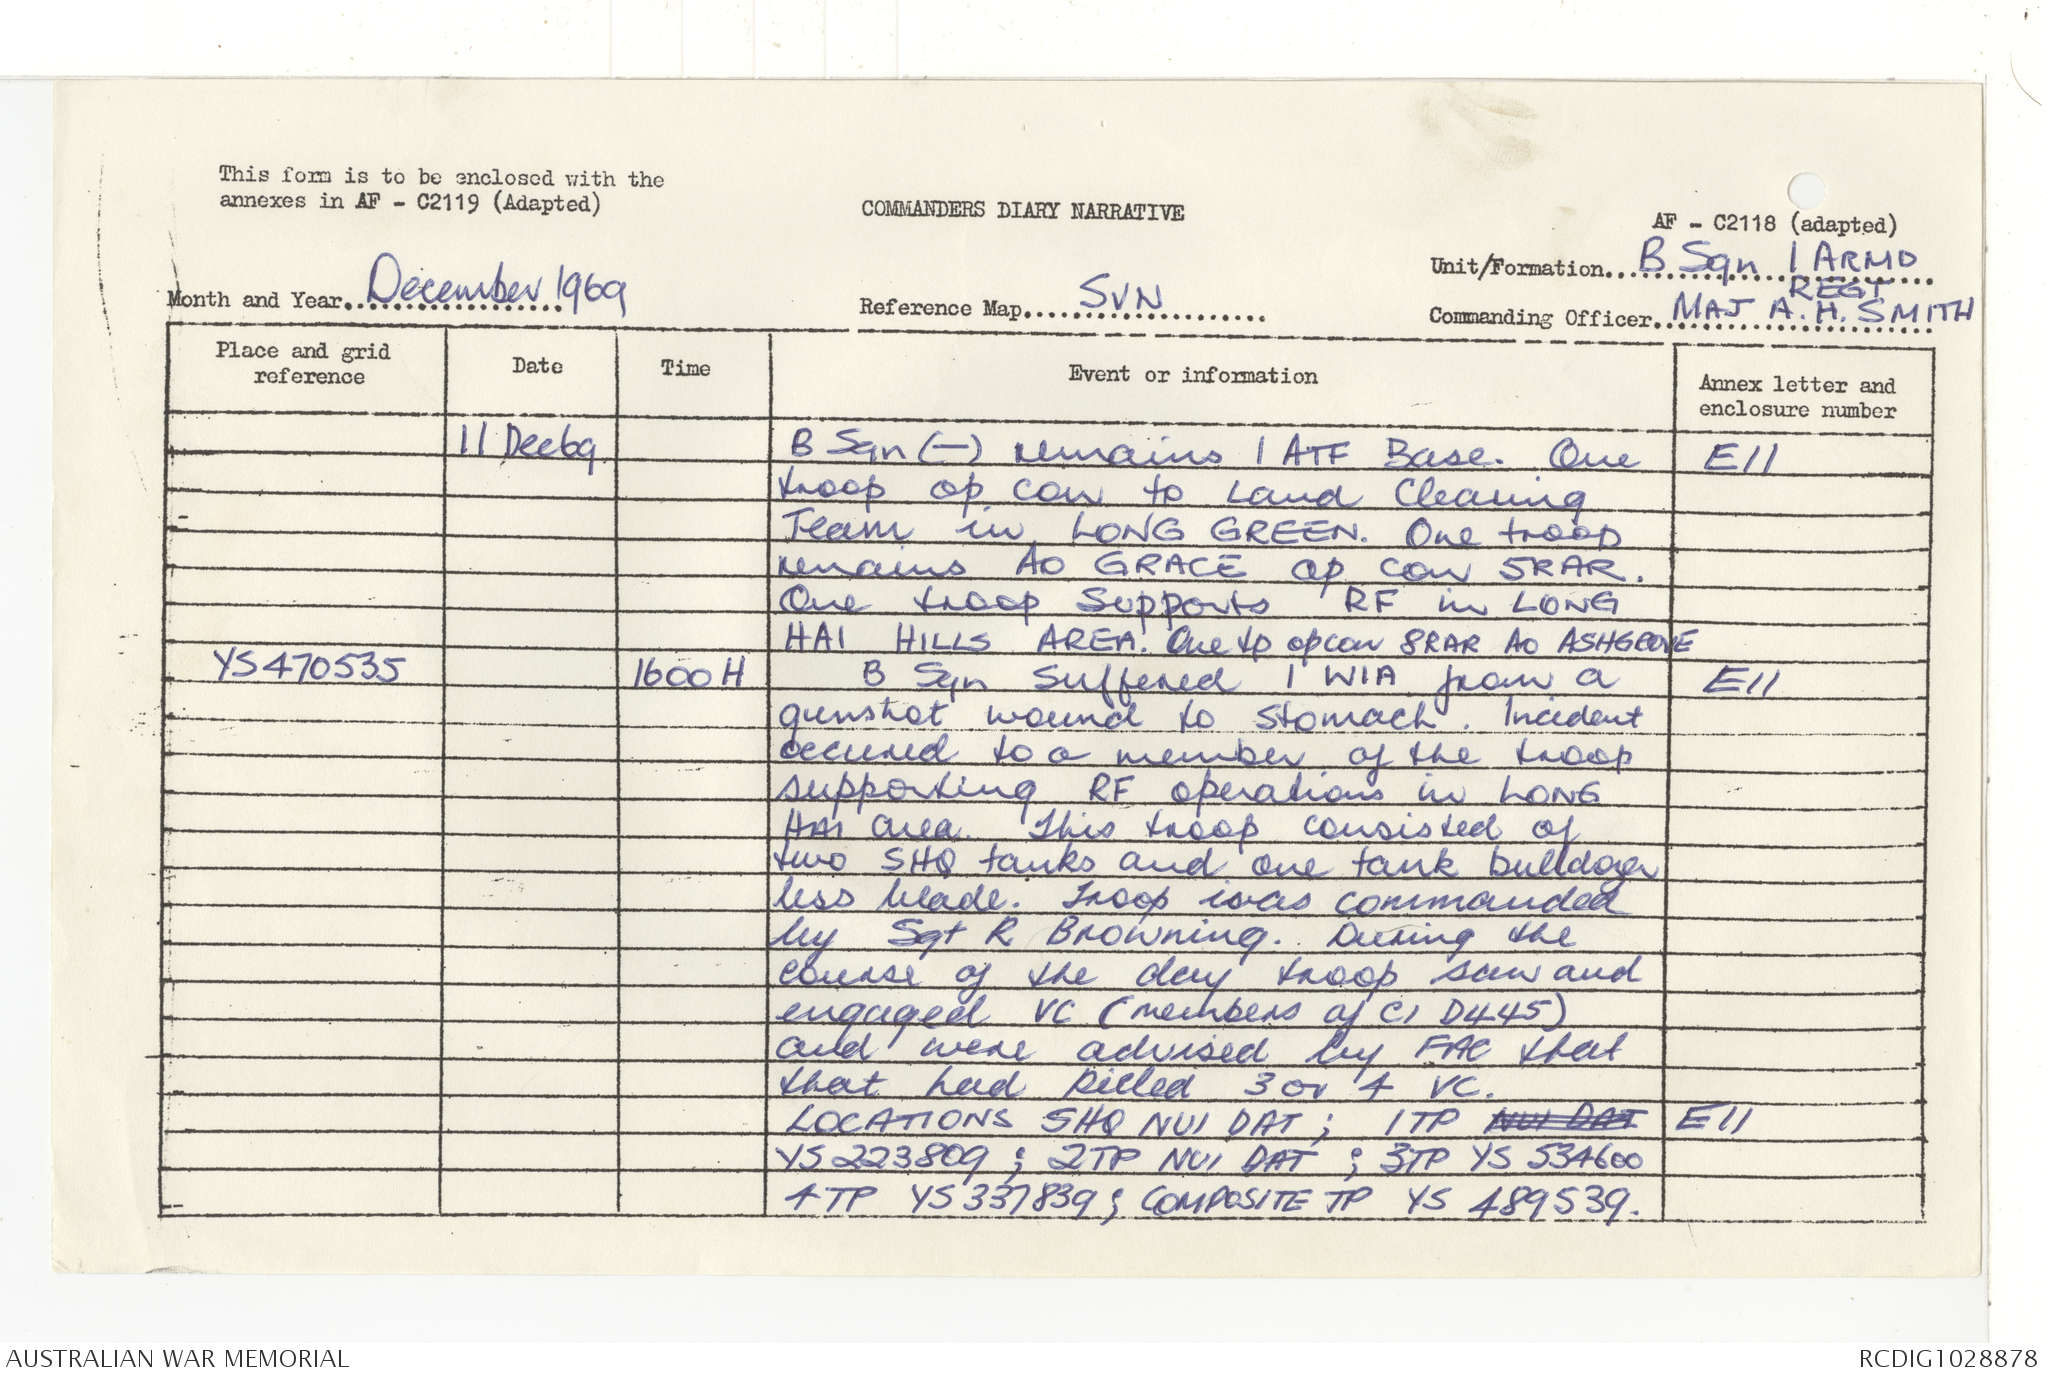 This form is to be enclosed with the
annexes in AF - C2119 (Adapted)
COMMANDERS DIARY NARRATIVE
AF - C2118 (adapted)
Month and Year December 1969
Reference Map SVN
Unit/Formation B Sqn 1 ARMD REGT
Commanding Officer MAJ A. H. SMITH
Place and grid reference
Date
Time
Event or information
Annex letter and enclosure number
11 Dec69 B Sqn (-) remains 1 ATF Base. One E11
troop op con to Land Clearing
Team in LONG GREEN. One troop
remains AO GRACE op con 5RAR.
One troop supports RF in LONG
HAI HILLS AREA. One tp opcon 8RAR AO ASHGROVE
YS470535 1600H B Sqn suffered 1 WIA from a E11
gunshot wound to stomach. Incident
occured to a member of the troop
supporting RF operations in LONG
HAI area. This troop consisted of
two SHQ tanks and one tank bulldozer
less blade. Troop was commanded
by Sgt R Browning. During the
course of the day troop saw and
engaged VC (members of C1 D445)
and were advised by FAC that
that had killed 3 or 4 VC.
LOCATIONS SHQ NUI DAT; 1TP NUI DAT E11
YS223809; 2TP NUI DAT; 3TP YS 534600
4TP YS337839; COMPOSITE TP YS 489539.
AUSTRALIAN WAR MEMORIAL
RCDIG1028878